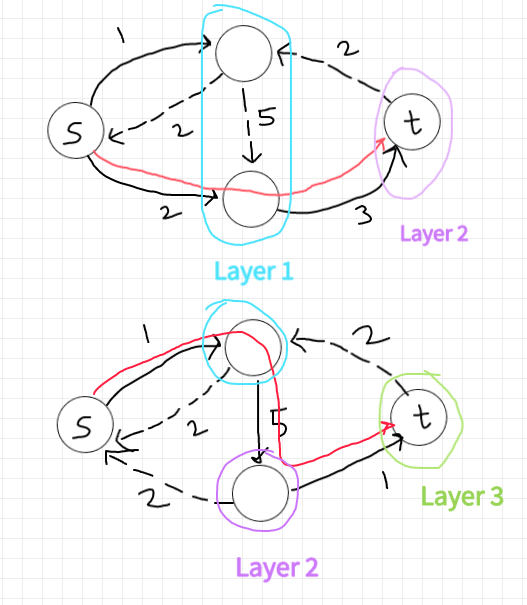 1
2
S
2
5
t
2
3
Layer 2
Layer 1
1
2
S
2
5
t
2
1
Layer 3
Layer 2